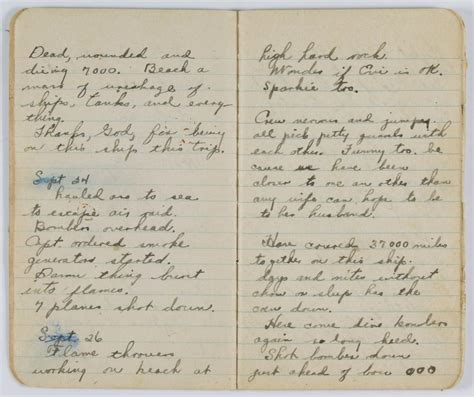 Dead, wounded and
dieing 7000. Beach a
mass of wreakage of
ships, tanks, and every
thing.
Thanks, God, for being
on this ship this trip.
Sept 24
hauled ass to sea
to escape air raid.
Bombers overhead.
Capt. ordered smoke
generators started.
Damn thing burst
into flames.
7 planes shot down.
Sept 26
Flame throwers
working on beach at
high hard rock.
Wonder if Evi is OK.
Sparkie too.
Crew nervous and jumpy.
all pick petty quarels with
each other. Funny too. be
cause we have been
closer to one an other than
any wife can hope to be
to her husband.
Have covered 37000 miles
together on this ship.
days and nites without
chow or sleep has the
crew down.
Here come dive bombers
again so long heed.
Shot bomber down
just ahead of bow 000